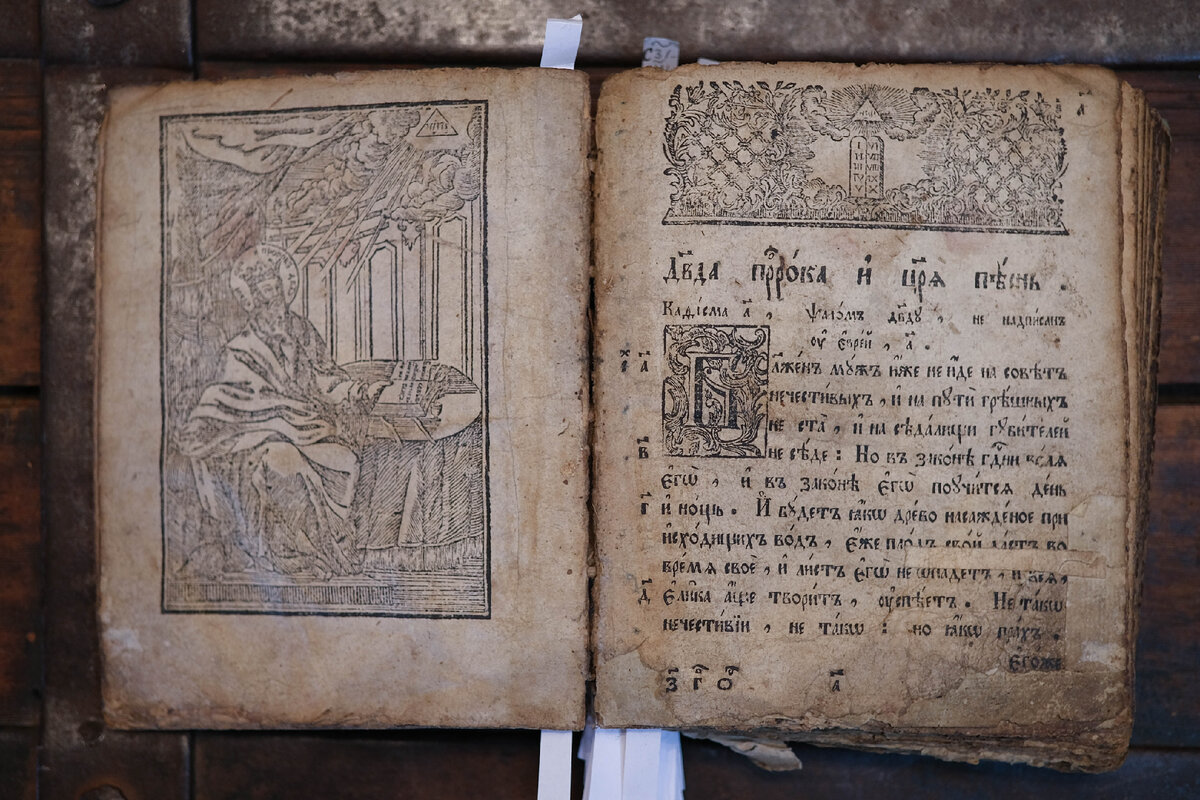 а҃
Дв҃да прⷪ҇ро́ка и҆ цр҃ѧ̀ пѣ́снь .
Каѳі́сма а҃ , Ѱало́мъ дв҃ду , не надписанъ
оу҆ є҆врє́й , а҃ .
а҃ Бл҃же́нъ мꙋ́жъ и҆́же не и҆́де на совѣ́тъ
нечести́выхъ , и҆ на пꙋтѝ грѣ́шныхъ
не ста̀ , и҆ на сѣда́лищи гꙋби́телей
в҃ не сѣ́де : Но въ зако́нѣ гд҇ни во́лѧ
є҆гѡ̀ , и҆ въ зако́нѣ є҆гѡ̀ поꙋчи́тсѧ де́нь
г҃ и҆ но́щь . И҆ бꙋ́детъ ꙗ҆́кѡ дре́во насажде́ное при
и҆схо́дищихъ во́дъ , є҆́же пло́дъ сво́й да́стъ во
вре́мѧ своѐ , и҆ ли́стъ є҆гѡ̀ не ѿпаде́тъ , и҆ всѧ̀ ,
д҃ є҆ли́ка а҆́ще твори́тъ , оу҆спѣ́етъ . Не та́кѡ
нечести́вїи , не та́кѡ : но ꙗ҆́кѡ пра́хъ .
є҆го́же
з҃ г҃ о҃ а҃